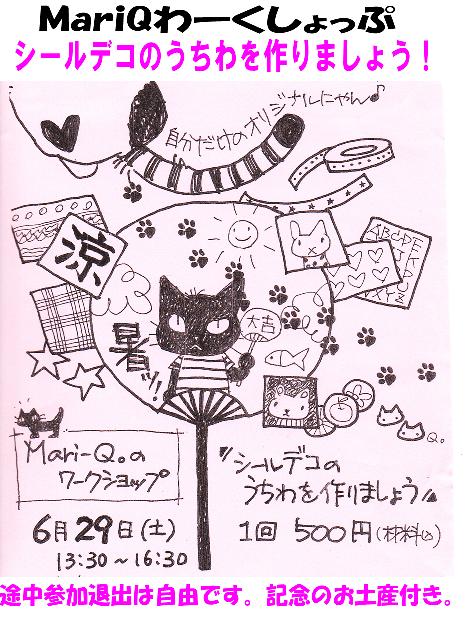 MariQわーくしょっぷ
シールデコのうちわを作りましょう！
自分だけのオリジナルにゃん♪
涼
ABCDE
暑ッ!
大吉
Q。
Mari-Q。の
ワークショップ
シールデコの
うちわを作りましょう
6月29日(土)
13:30～16:30
1回 500円(材料込)
途中参加退出は自由です。記念のお土産付き。